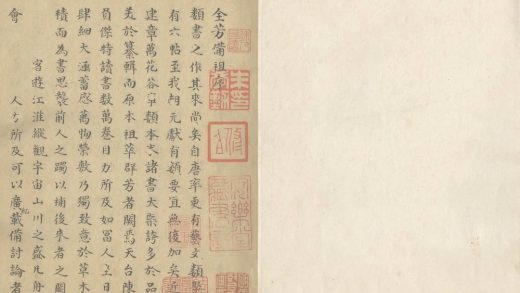 全芳備祖序
類書之作其來尚矣自唐率更有藝文類聚
有六帖至我朝元獻有類要宜無復加矣近
建章萬花谷類本諸書大槩誇多於品
美於纂輯而原本祖萃群芳者闕焉天台陳
負傑特讀書數萬卷目力所及如富人日
肆細大涵蓄萬物榮敷乃獨致意於草木
積而為書思前人之躅以補後來者之闕
宦遊江淮縱觀宇宙山川之盛凡舟
會 人所及可以廣載備討論者